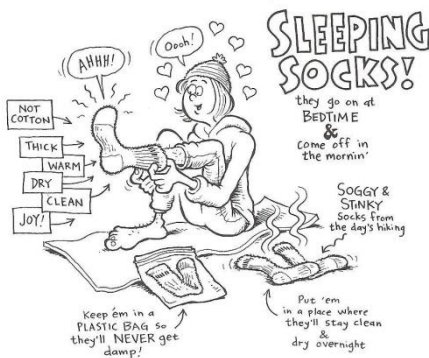 SLEEPING
SOCKS!
they go on at
BEDTIME
&
come off in
the mornin'
Oooh!
AHHH!
NOT
COTTON
THICK
WARM
DRY
CLEAN
JOY!
SOGGY &
STINKY
Socks from
the day's hiking
Keep 'em in a
PLASTIC BAG so
they'll NEVER get
damp!
Put 'em
in a place where
they'll stay clean
&
dry overnight